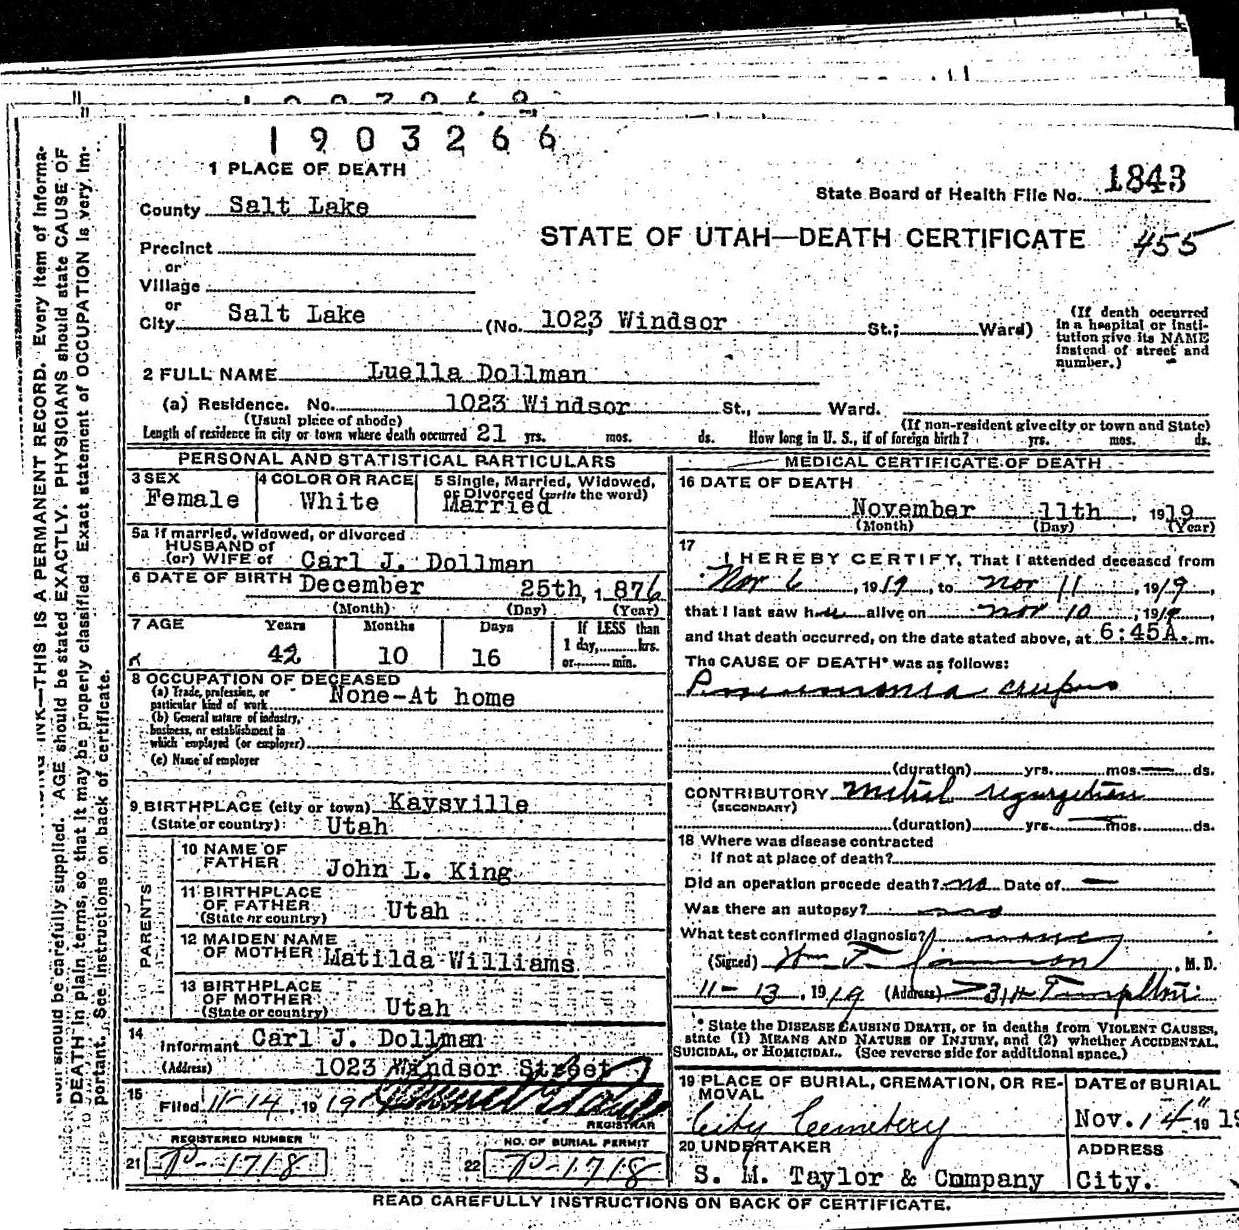 1903266
1 PLACE OF DEATH
State Board of Health File No. 1843
County Salt Lake
STATE OF UTAH—DEATH CERTIFICATE 455
Precinct
or
Village
or
City Salt Lake (No. 1023 Windsor St.; Ward)
(If death occurred
in a hospital or insti-
tution give its NAME
instead of street and
number.)
2 FULL NAME Luella Dollman
(a) Residence. No. 1023 Windsor St., Ward.
(Usual place of abode) (If non-resident give city or town and State)
Length of residence in city or town where death occurred 21 yrs. mos. ds. How long in U. S., if of foreign birth? yrs. mos. ds.
PERSONAL AND STATISTICAL PARTICULARS
3 SEX
Female
4 COLOR OR RACE
White
5 Single, Married, Widowed,
or Divorced (write the word)
Married
5a If married, widowed, or divorced
HUSBAND of
(or) WIFE of Carl J. Dollman
6 DATE OF BIRTH December 25th, 1876
(Month) (Day) (Year)
7 AGE Years Months Days If LESS than
1 day, hrs.
42 10 16 or min.
8 OCCUPATION OF DECEASED
(a) Trade, profession, or
particular kind of work None-At home
(b) General nature of industry,
business, or establishment in
which employed (or employer)
(c) Name of employer
9 BIRTHPLACE (city or town) Kaysville
(State or country) Utah
PARENTS
10 NAME OF
FATHER John L. King
11 BIRTHPLACE
OF FATHER
(State or country) Utah
12 MAIDEN NAME
OF MOTHER Matilda Williams
13 BIRTHPLACE
OF MOTHER
(State or country) Utah
14
Informant Carl J. Dollman
(Address) 1023 Windsor Street
15
Filed 11-14, 1919
REGISTRAR
REGISTERED NUMBER
21 P-1718
NO. OF BURIAL PERMIT
22 P-1718
MEDICAL CERTIFICATE OF DEATH
16 DATE OF DEATH
November 11th, 1919
(Month) (Day) (Year)
17
I HEREBY CERTIFY, That I attended deceased from
Nov 6, 1919, to Nov 11, 1919,
that I last saw her alive on Nov 10, 1919,
and that death occurred, on the date stated above, at 6:45A.m.
The CAUSE OF DEATH* was as follows:
Pneumonia
(duration) yrs. mos. ds.
CONTRIBUTORY Mitral regurgitation
(SECONDARY)
(duration) yrs. mos. ds.
18 Where was disease contracted
If not at place of death?
Did an operation procede death? no Date of —
Was there an autopsy? no
What test confirmed diagnosis?
(Signed) Wm T. M.D.
11-13, 1919 (Address)
* State the DISEASE CAUSING DEATH, or in deaths from VIOLENT CAUSES,
state (1) MEANS AND NATURE OF INJURY, and (2) whether ACCIDENTAL,
SUICIDAL, or HOMICIDAL. (See reverse side for additional space.)
19 PLACE OF BURIAL, CREMATION, OR RE-
MOVAL
City Cemetery
DATE of BURIAL
Nov. 14" 19
20 UNDERTAKER
S. M. Taylor & Cmmpany
ADDRESS
City.
READ CAREFULLY INSTRUCTIONS ON BACK OF CERTIFICATE.
INK—THIS IS A PERMANENT RECORD. Every item of informa-
should be carefully supplied. AGE should be stated EXACTLY. PHYSICIANS should state CAUSE OF
DEATH in plain terms, so that it may be properly classified. Exact statement of OCCUPATION is very im-
portant. See instructions on back of certificate.